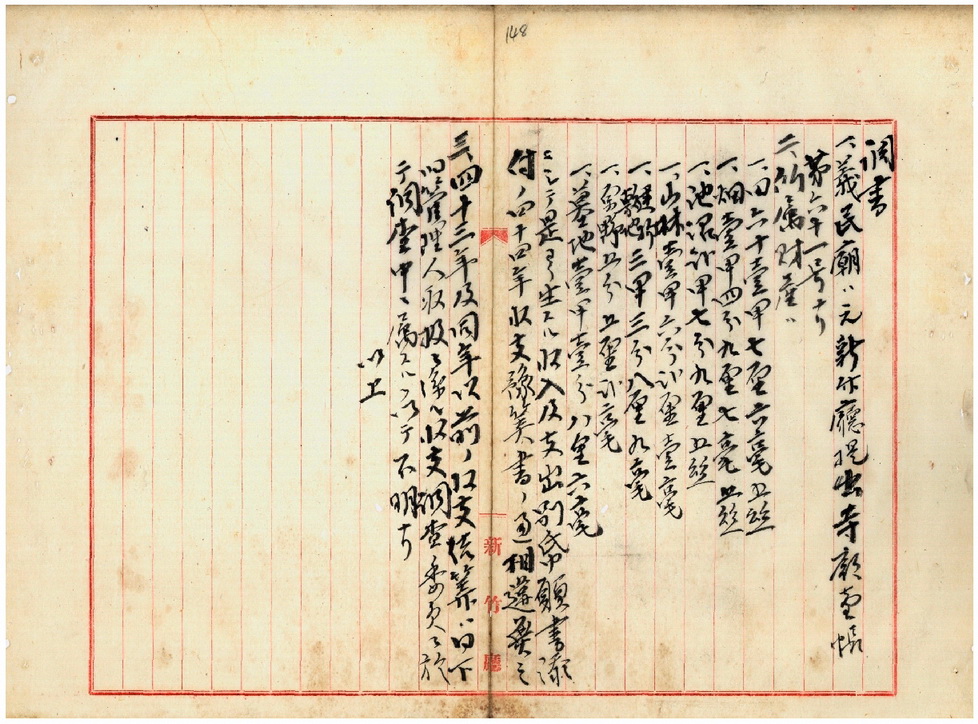 148
調書
一、義民廟ハ元新竹廳提出寺廟台帳
第六十一号ナリ
二、所属財産ハ
一、田六十壹甲七厘六毫五絲
一、畑壹甲四分九厘七毫五絲
一、池沼弐甲七分九厘五絲
一、山林壹甲六分弐厘壹毫
一、雜種地三甲三分八厘九毫
一、原野五分五厘弐毫
一、墓地壹甲壹分八厘六毫
ニシテ是ヨリ生スル收入及支出別帋願書添
付ノ四十四年收支豫算書ノ通相違無之
三、四十三年及同年以前ノ收支決算ハ目下
旧管理人取扱ニ係ル收支調査委員ニ於
テ調査中ニ属スルヲ以テ不明ナリ
以上
新竹廳